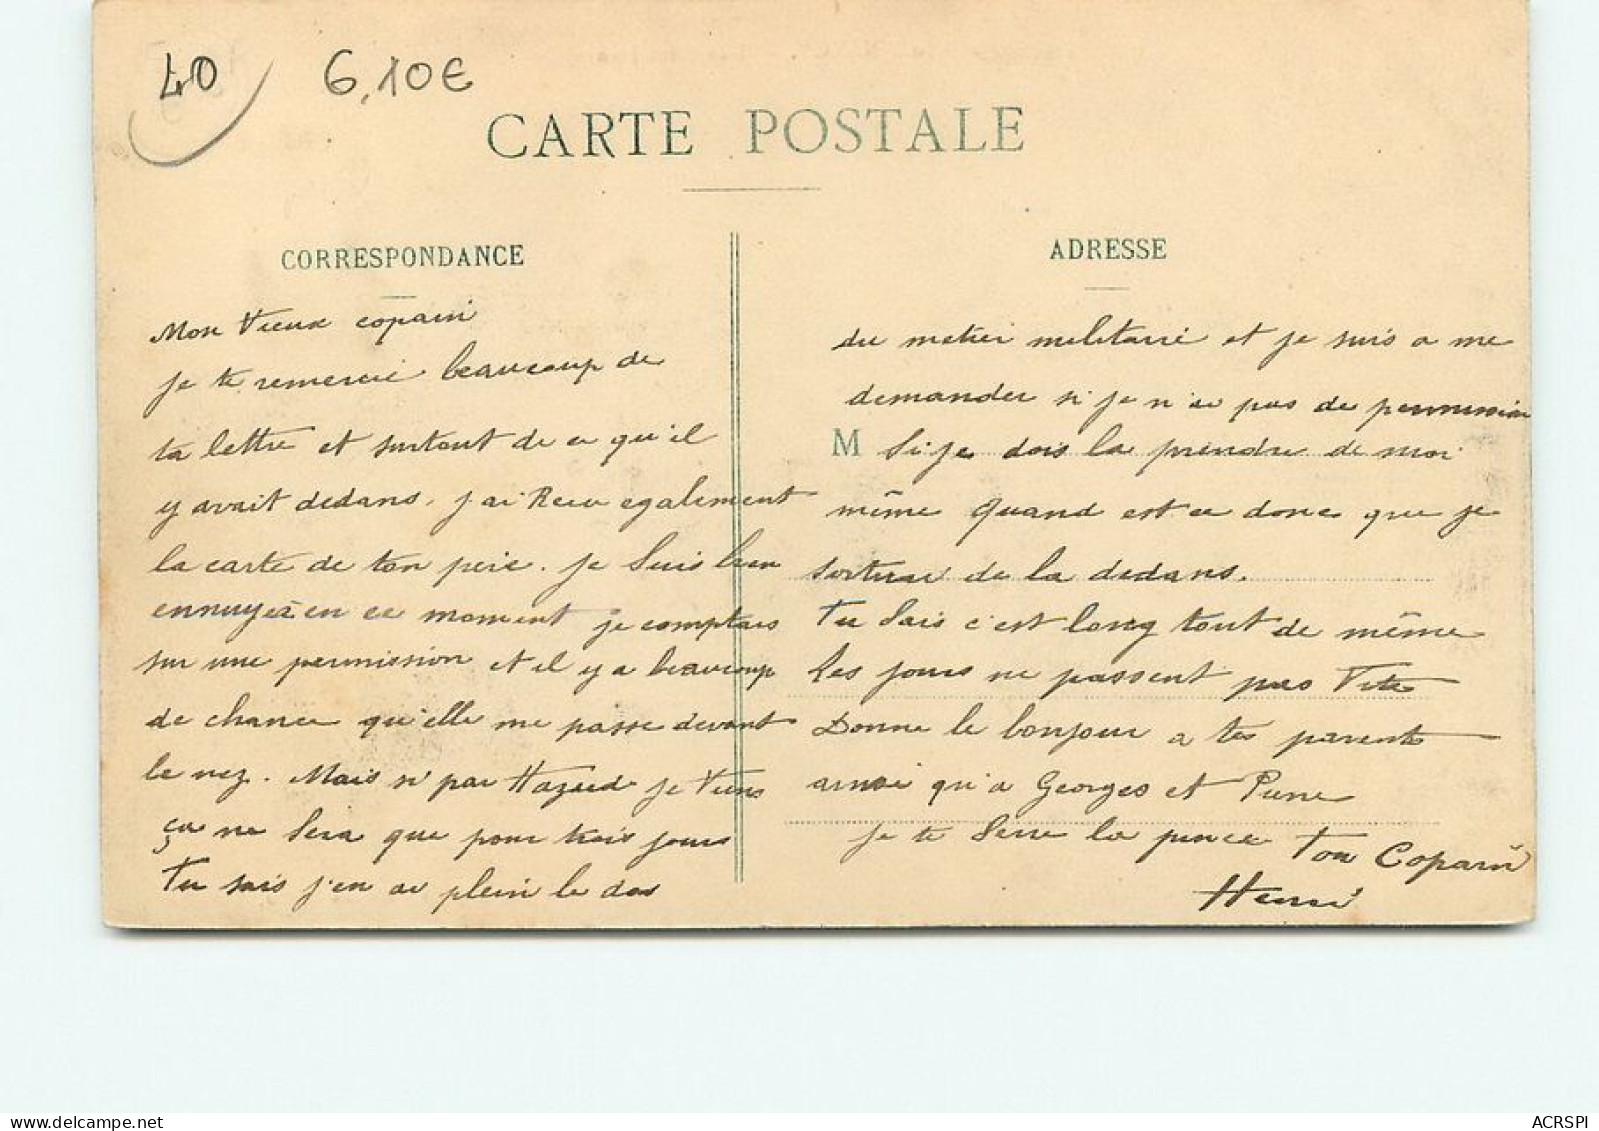 40
6,10€
CARTE POSTALE
CORRESPONDANCE
Mon Vieux copain
je te remercie beaucoup de
ta lettre et surtout de ce qu'il
y avait dedans. j'ai Recu egalement
la carte de ton père. Je Suis bien
ennuyé en ce moment je comptais
sur une permission et il y a beaucoup
de chance qu'elle me passe devant
le nez. Mais si par Hazard je Viens
ça ne Sera que pour trois jours
Tu sais j'en ai plein le dos
ADRESSE
du metier militaire et je suis a me
demander si je n'ai pas de permission
M
Si je dois la prendre de moi
même Quand est ce donc que je
sortirai de la dedans.
Tu Sais c'est long tout de même
les jours ne passent pas Vite
Donne le bonjour a tes parents
ainsi qu'a Georges et Pierre
je te Serre la pince Ton Copain
Henri
ACRSPI